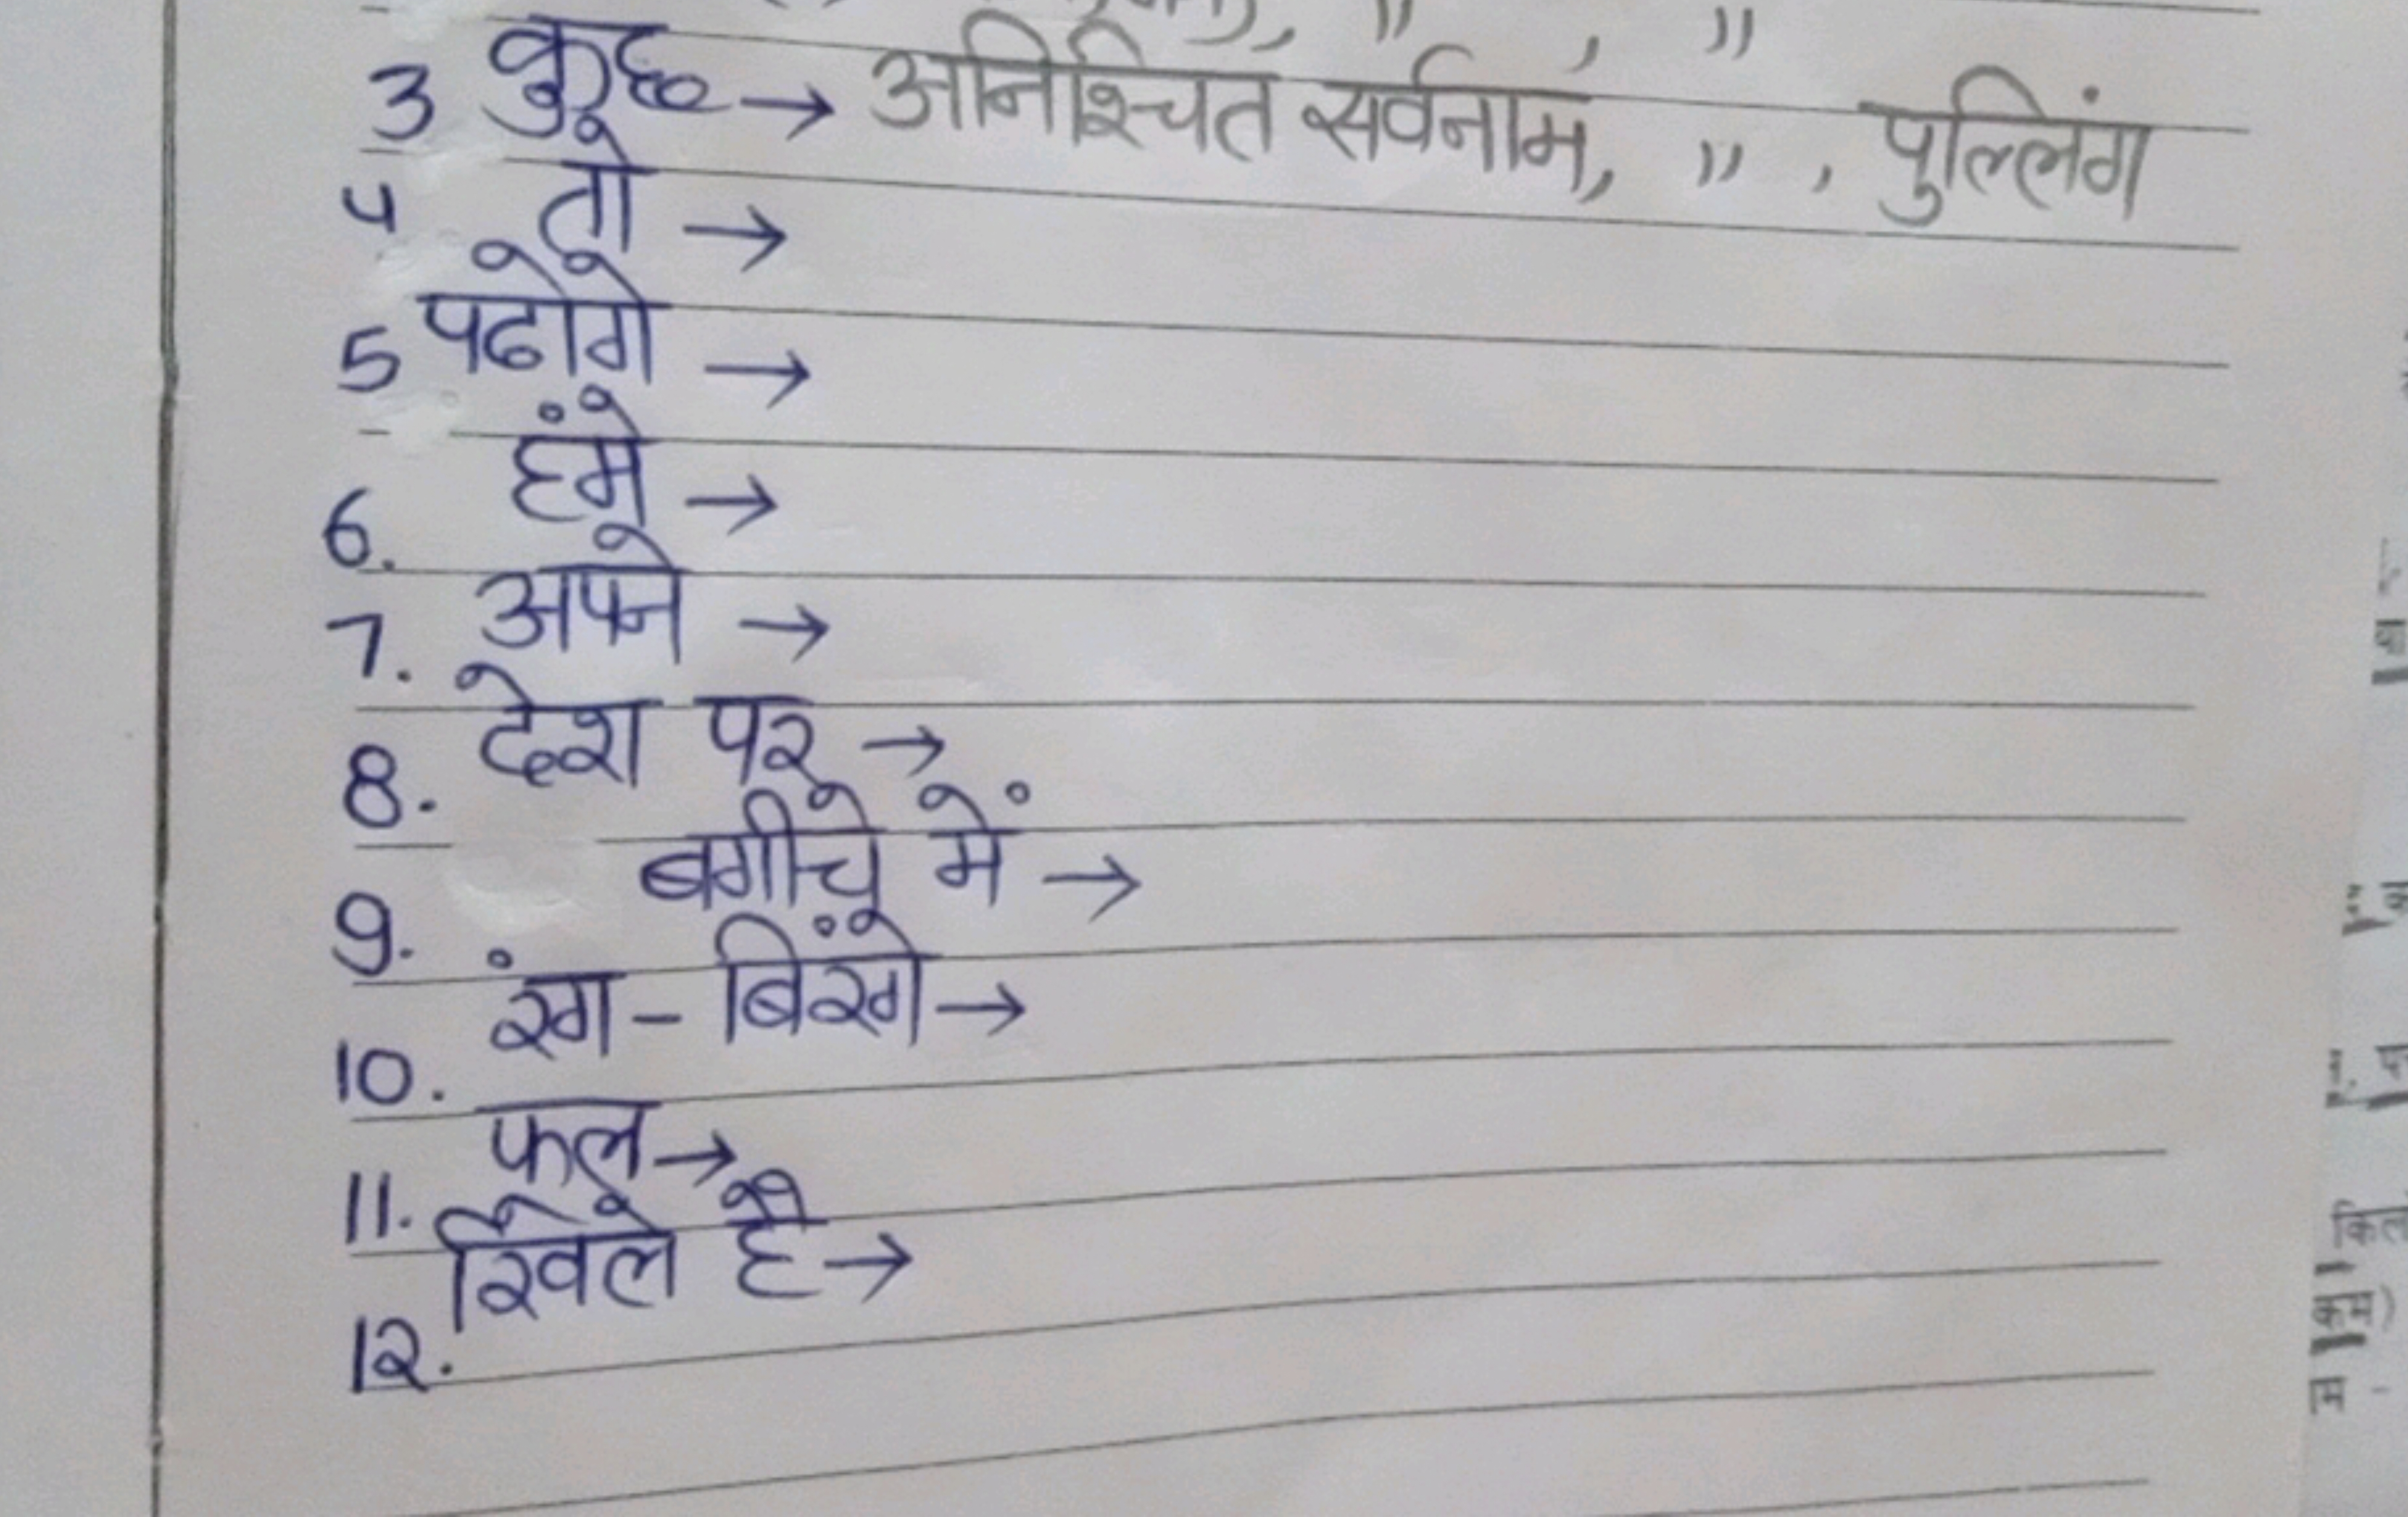 " , "
3 कुछ → अनिश्चित सर्वनाम, " , पुल्लिंग
4 तो →
5 पढोगे →
6. हंमे →
7. अपने →
8. देश पर →
9. बगीचे में →
10. रंग - बिरंगे →
11. फल →
12. खिले है →
किल
कम)
म -